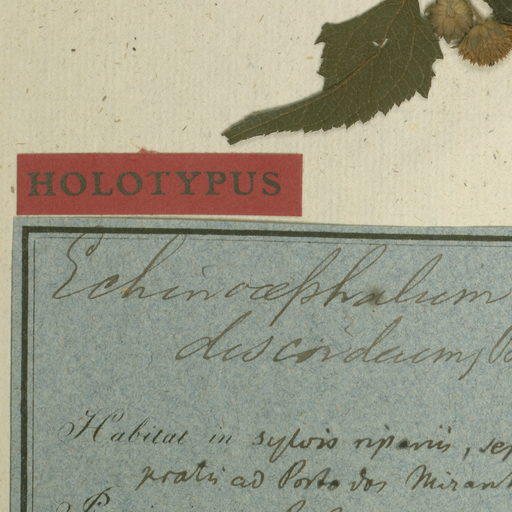 HOLOTYPUS
Echinocephalum
discordeum,
Habitat in sylvis ripariis, sep
pratis ad Porto dos Mirant